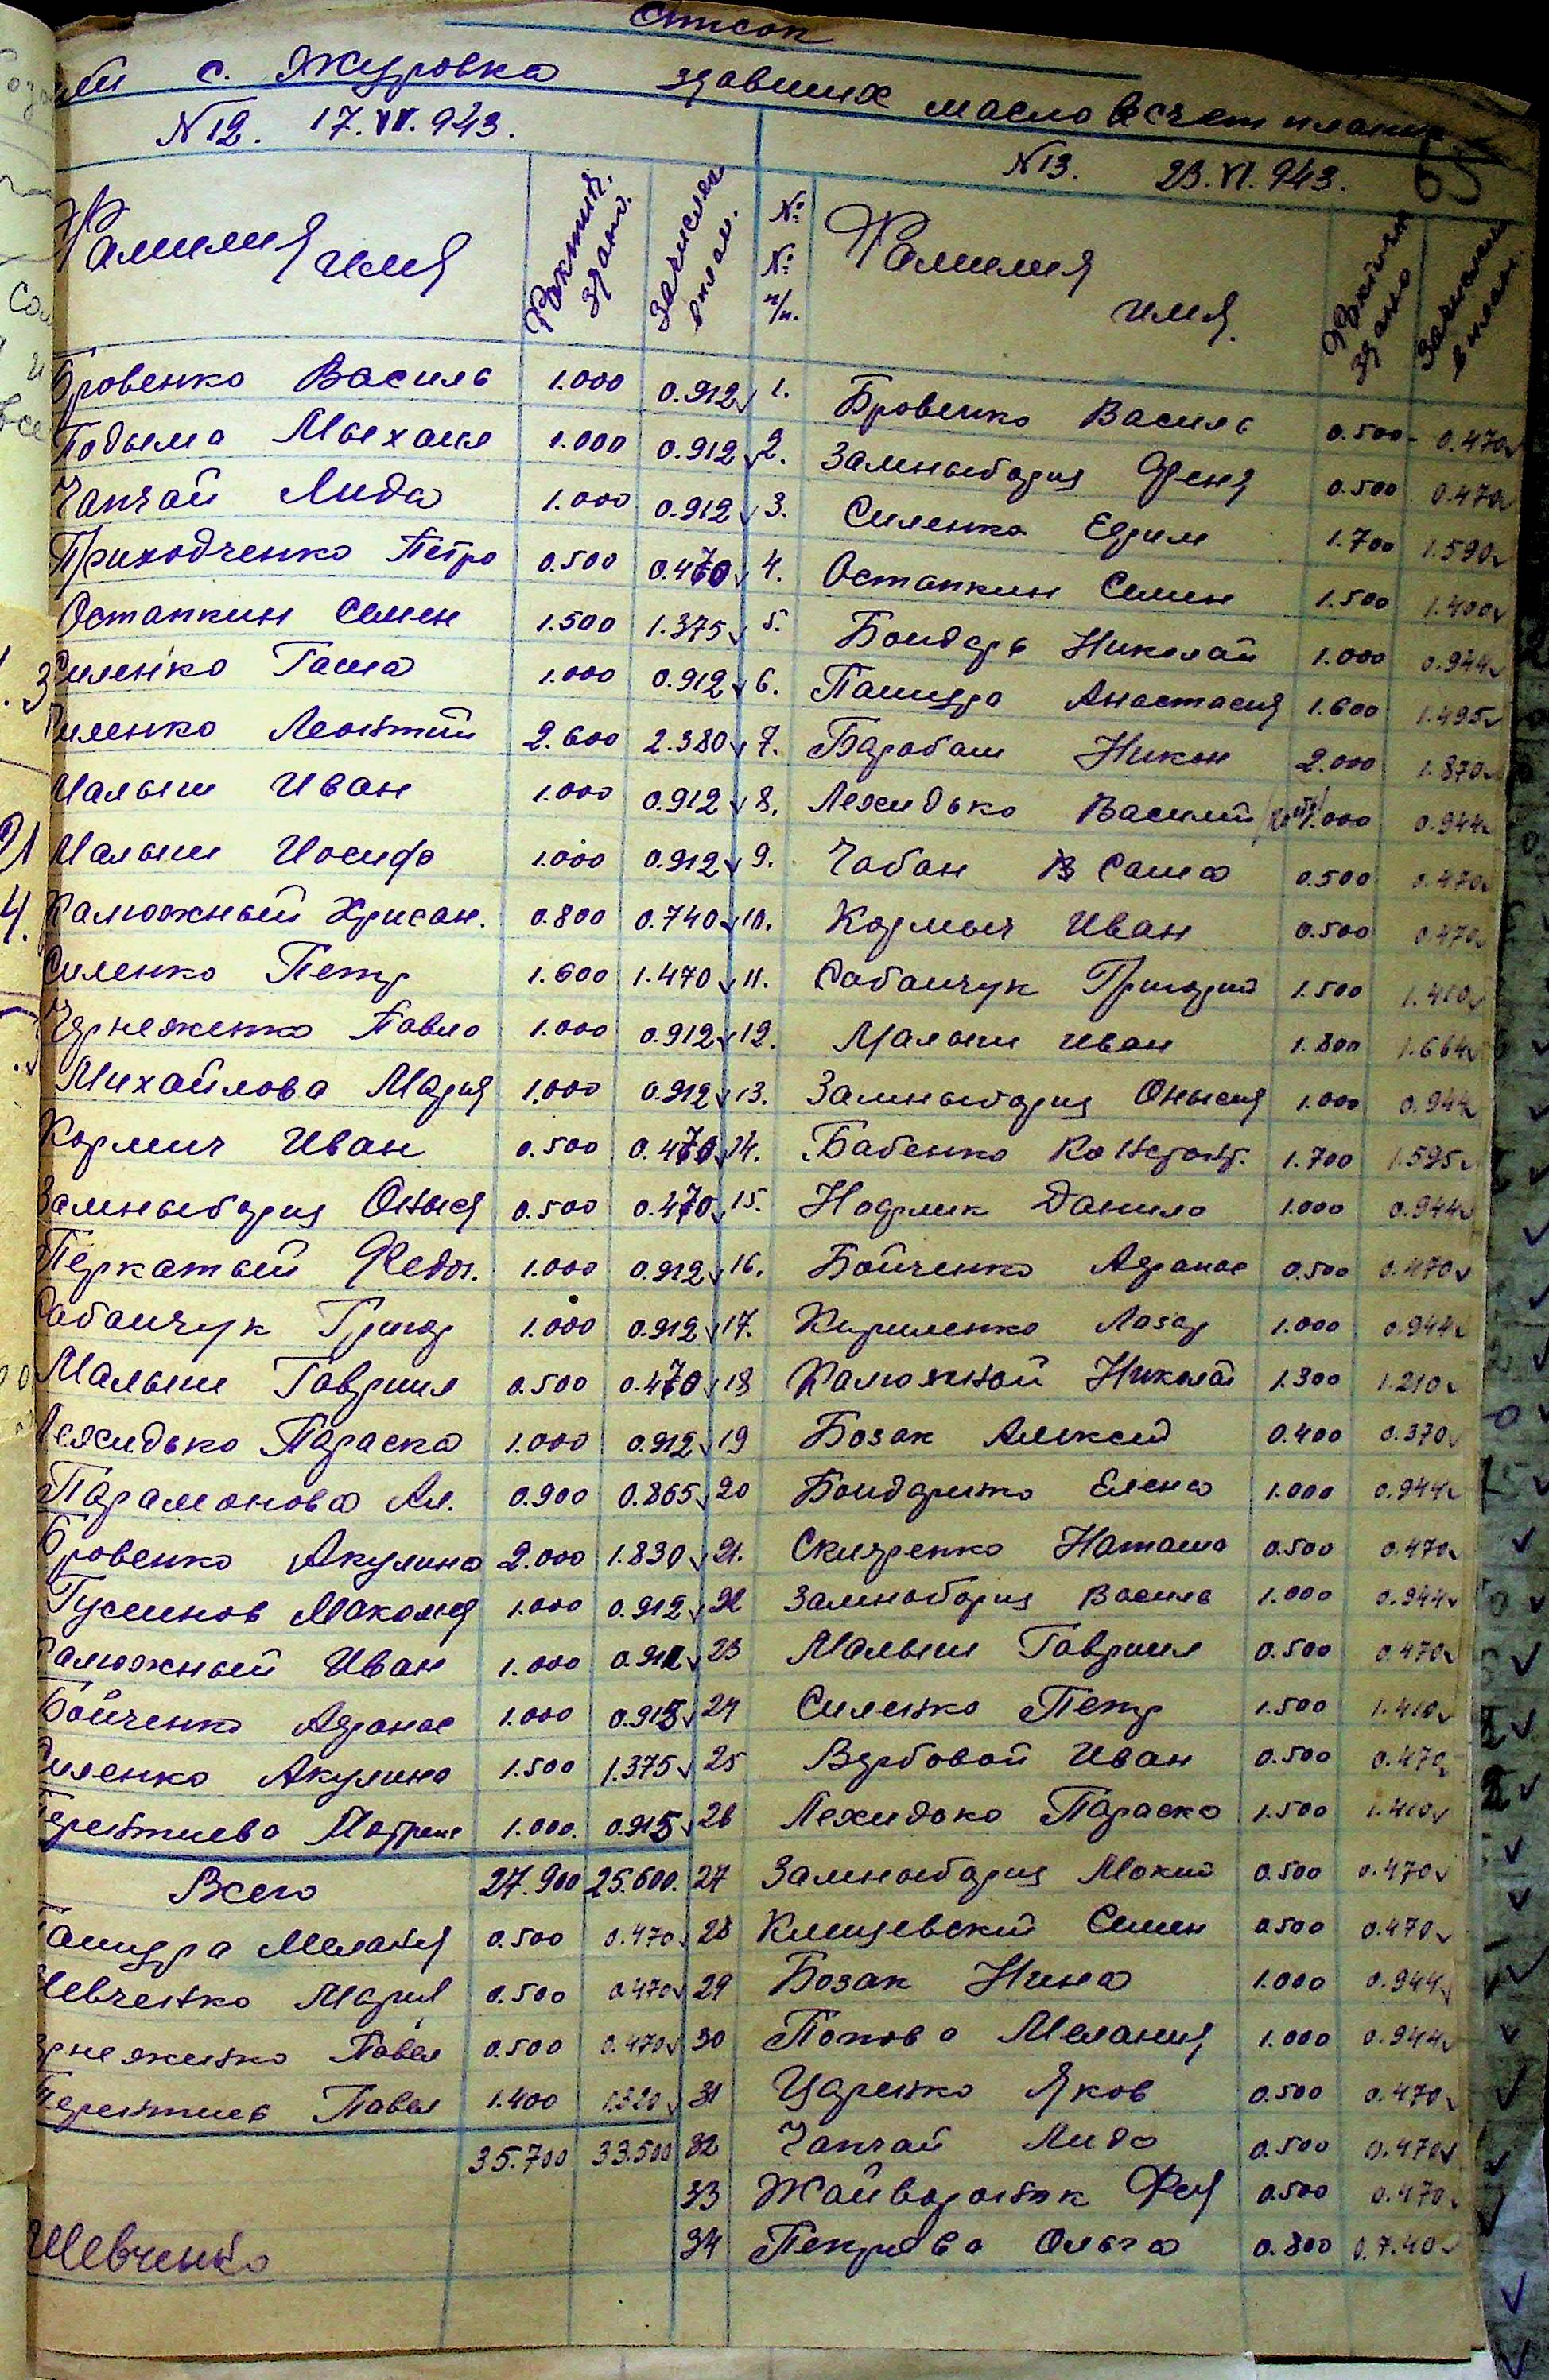 Список
с. Яжуровка здавших масло в счет плана
N12. 17.VI.943.
N13. 23.VI.943.
Фамилия имя
Фактич. здано.
Зачислен в план.
№ № п/п.
Фамилия имя.
Фактичн здано
Зачислен в план.
Бровенко Василь 1.000 0.912
Подыма Мыхаил 1.000 0.912
Чапчай Лида 1.000 0.912
Приходченко Петро 0.500 0.470
Остапкин Семен 1.500 1.375
Силенко Гаша 1.000 0.912
Силенко Леонтий 2.600 2.380
Малыш Иван 1.000 0.912
Малыш Иосиф 1.000 0.912
Калюжный Хрисан. 0.800 0.740
Силенко Петр 1.600 1.470
Чернеженко Павло 1.000 0.912
Михайлова Мария 1.000 0.912
Кормич Иван 0.500 0.470
Замныборщ Оныся 0.500 0.470
Перкатый Федо. 1.000 0.912
Сабанчук Григор 1.000 0.912
Малыш Гавриил 0.500 0.470
Лехидько Параска 1.000 0.912
Парамонова Ал. 0.900 0.865
Бровенко Акулина 2.000 1.830
Гусинов 1.000 0.912
Калюжный Иван 1.000 0.912
Бойченко Афанас 1.000 0.915
Силенко Акулина 1.500 1.375
Терентиева Матрена 1.000. 0.915
Всего 27.900 25.600.
Пашура Мелания 0.500 0.470
Шевченко Мария 0.500 0.470
Чернеженко Павел 0.500 0.470
Терентиев Павел 1.400 1.320
35.700 33.500
Шевченко
1. Бровенко Василь 0.500 0.470
2. Замныборщ Феня 0.500 0.470
3. Силенко Ефим 1.700 1.590
4. Остапкин Семен 1.500 1.400
5. Бондарь Николай 1.000 0.944
6. Пашура Анастасия 1.600 1.495
7. Барабаш Никон 2.000 1.870
8. Лехидько Василий 1.000 0.944
9. Чабан Саша 0.500 0.470
10. Кормыч Иван 0.500 0.470
11. Сабанчук Григорий 1.500 1.410
12. Малыш Иван 1.800 1.664
13. Замныборщ Онысия 1.000 0.944
14. Бабенко Констант. 1.700 1.595
15. Нофлик Данило 1.000 0.944
16. Бойченко Афанас 0.500 0.470
17. Кириленко Лазар 1.000 0.944
18 Калюжной Николай 1.300 1.210
19 Бозак Алексей 0.400 0.370
20 Бондаренко Елена 1.000 0.944
21. Скляренко Наташа 0.500 0.470
22 Замныборщ Василь 1.000 0.944
23 Малыш Гавриил 0.500 0.470
24 Силенко Петр 1.500 1.410
25 Вербовой Иван 0.500 0.470
26 Лехидько Параска 1.500 1.410
27 Замныборщ Мокий 0.500 0.470
28 Клищевский Семен 0.500 0.470
29 Бозак Нина 1.000 0.944
30 Попова Мелания 1.000 0.944
31 Царенко Яков 0.500 0.470
32 Чапчай Лида 0.500 0.470
33 Жайворонок 0.500 0.470
34 Петрова Ольга 0.800 0.740